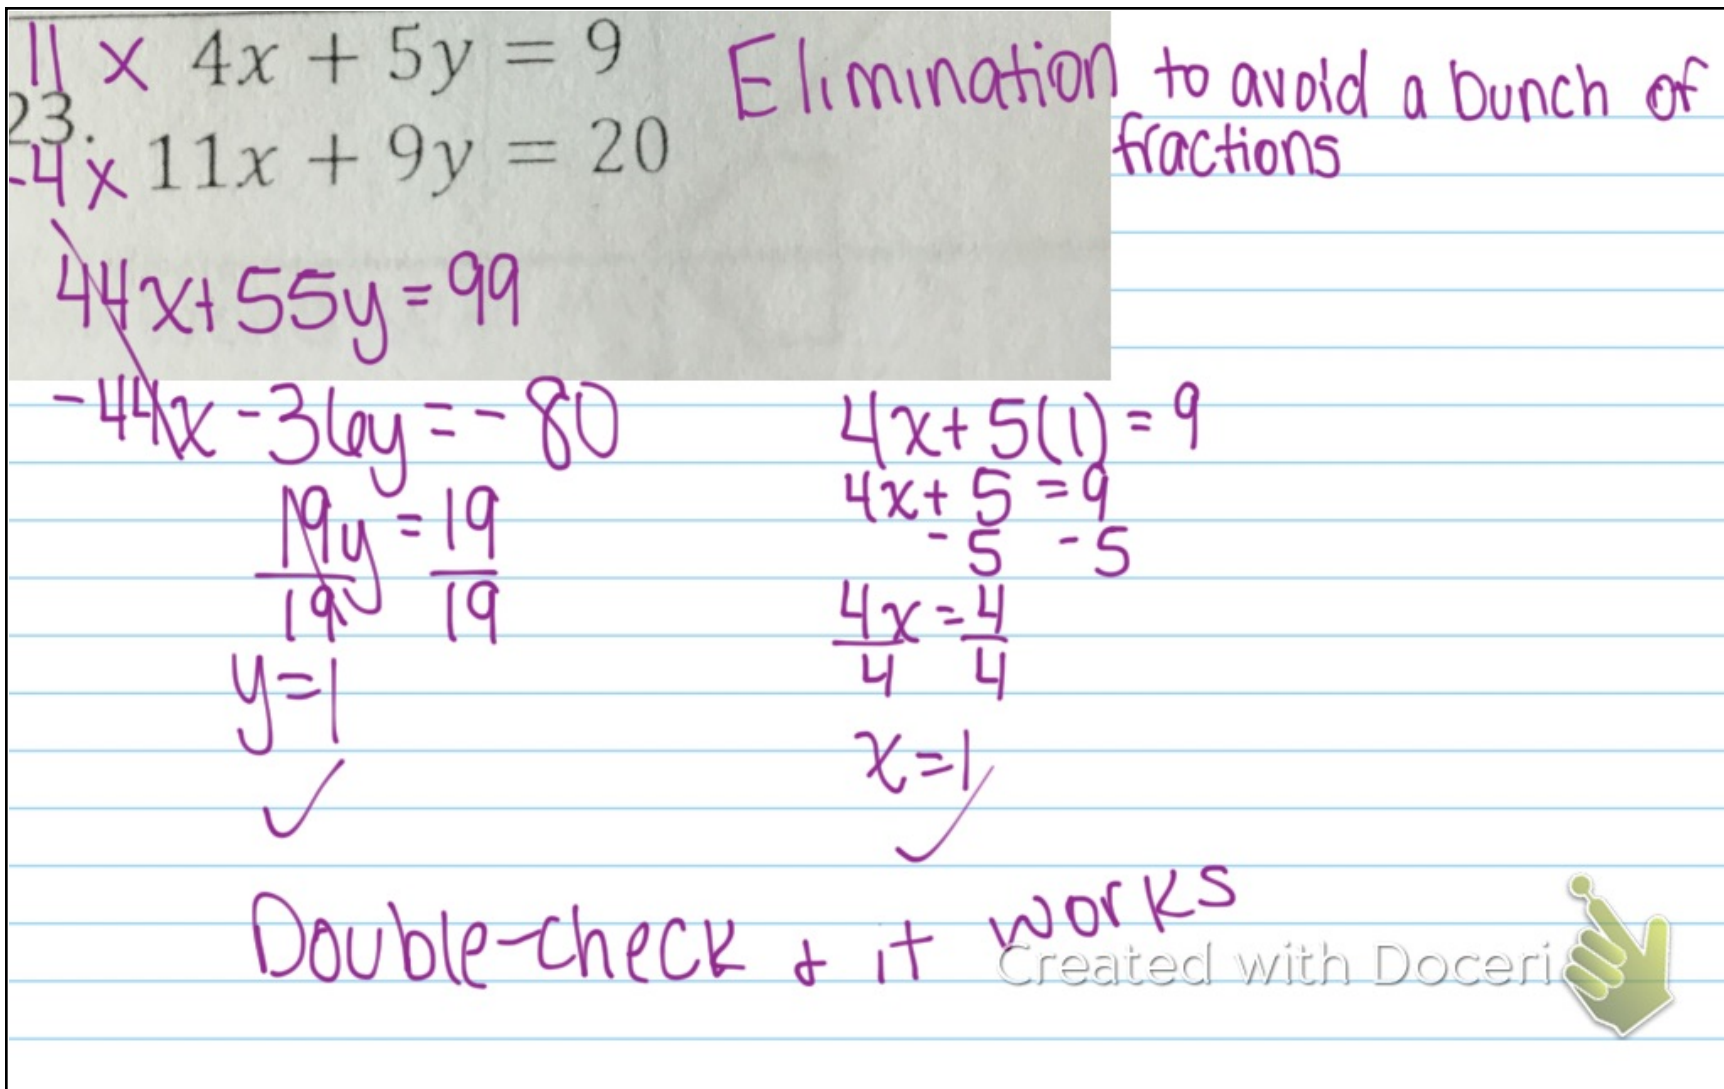 11 x 4x + 5y = 9
23.
-4 x 11x + 9y = 20
Elimination to avoid a bunch of
fractions
44x + 55y = 99
-44x - 36y = -80
19y = 19
19 19
y = 1
✓
4x + 5(1) = 9
4x + 5 = 9
- 5 - 5
4x = 4
4 4
x = 1
✓
Double-check & it works
Created with Doceri